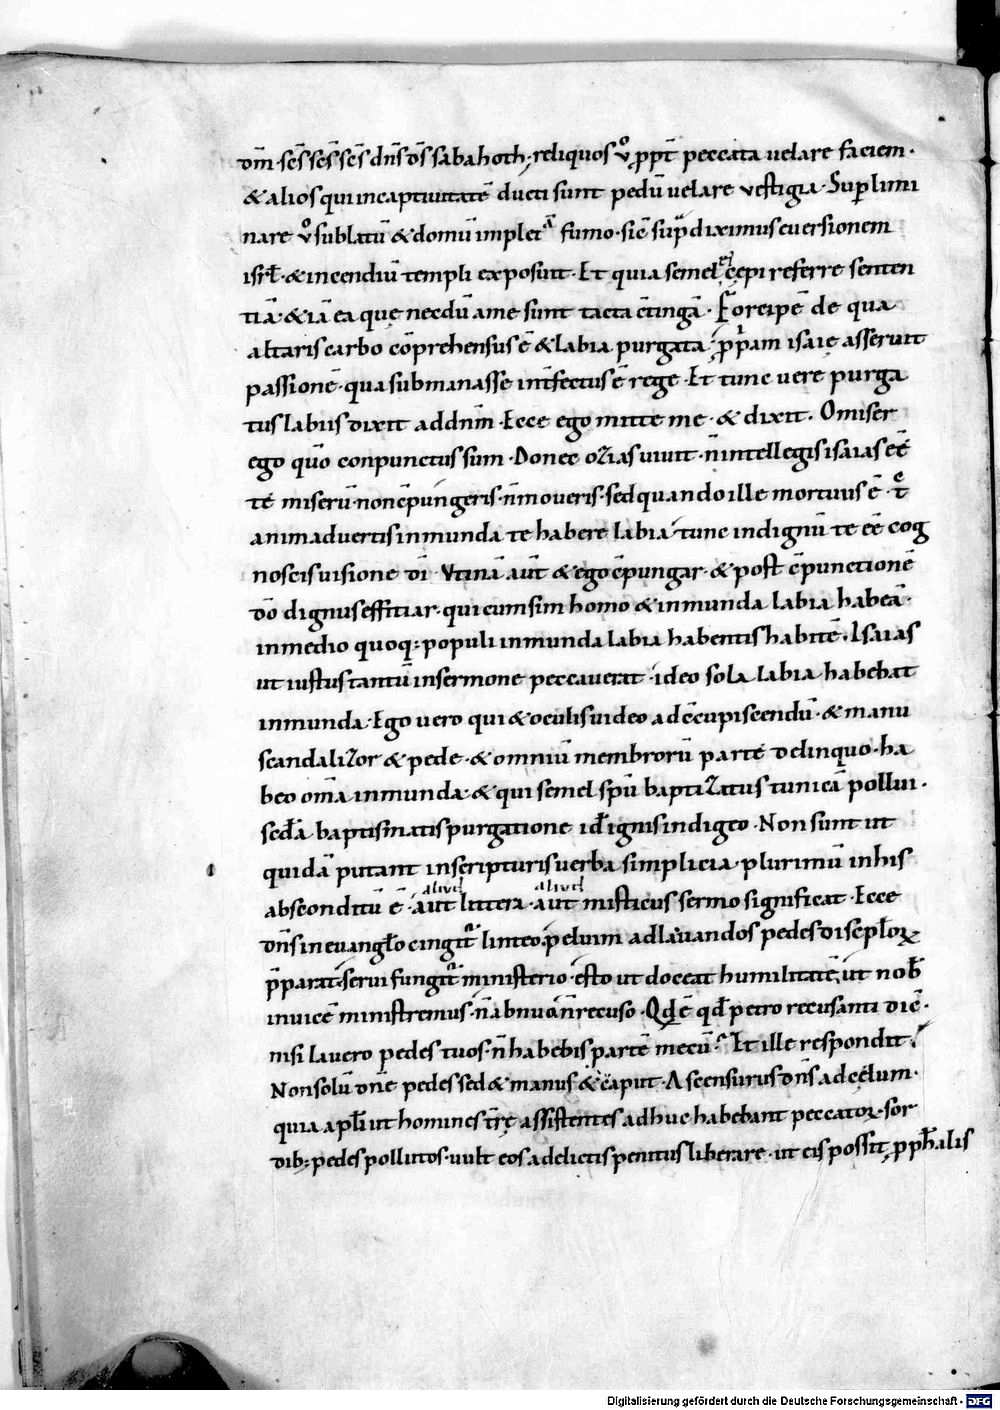 dm̄· sc̄s sc̄s sc̄s dn̄s ds̄ sabahoth; reliquos v̊ ꝓpt̄ peccata uelare faciem·
& alios qui incaptiuitatē ducti sunt pedū uelare vestigia· Sup̱limi
nare v̊ sublatū & domū implet᷑ fumo· sic̄ sup̄diximus euersionem
isrł· & incendiū templi exposuit· Et quia semel cępi referre senten
tiā· & iā ea quę necdū ame sunt tacta c̄tingā· Forcipē de qua
altaris carbo cōprehensus ē & labia purgata· ꝓpam isaię asseruit
passionē· qua submanasse int̄fectus ē rege· Et tunc vere purga
tus labiis dixit addn̄m· Ecce ego mitte me· & dixit· O miser
ego qūo conpunctus sum· Donec ozias uiuit· n̄ intellegis isaias eē
té miserū· non c̄pungeris· n̄ moueris· sed quando ille mortuus ē· t̄c
animaduertis inmunda te habere labia· tunc indignū te eē cog
noscis uisione dī· Vtinā aut̄ & ego c̄pungar· & post c̄punctionē
dō dignus effitiar· qui cum sim homo & inmunda labia habeā·
in medio quoq; populi inmunda labia habentis habitē· Isaias
ut iustus tantū insermone peccauerat· ideo sola labia habebat
inmunda· Ego uero qui & oculis uideo ad c̄cupiscendū· & manu
scandalizor & pede· & omniū membrorū parte delinquo· ha
beo om̄a inmunda· & qui semel spū baptizatus tunicā pollui·
sed̄a baptismatis purgatione id̄ ignis indigeo· Non sunt ut
quidā putant inscripturis uerba simplicia· plurimū in his
absconditū ē· aut littera· aut misticus sermo significat· Ecce
aliud aliud
dn̄s in euangło cingit᷑ linteo· peluim ad lauandos pedes discipłoꝝ
p̄parat· serui fungit᷑ ministerio· esto ut doceat humilitatē, ut nob̄
inuicē ministremus· n̄ abnuo n̄ recuso· Qd ē qd̄ petro recusanti dic̄·
nisi lauero pedes tuos· n̄ habebis partē mecū· Et ille respondit·
Non solū dn̄e pedes sed & manus & caput· Ascensurus dn̄s ad cęlum·
quia apłi ut homines t̄rę assistentes adhuc habebant peccatoꝝ· sor
dib; pedes pollutos· uult eos adelictis penitus liberare· ut eis possit ꝓph̄alis
Digitalisierung gefördert durch die Deutsche Forschungsgemeinschaft - DFG